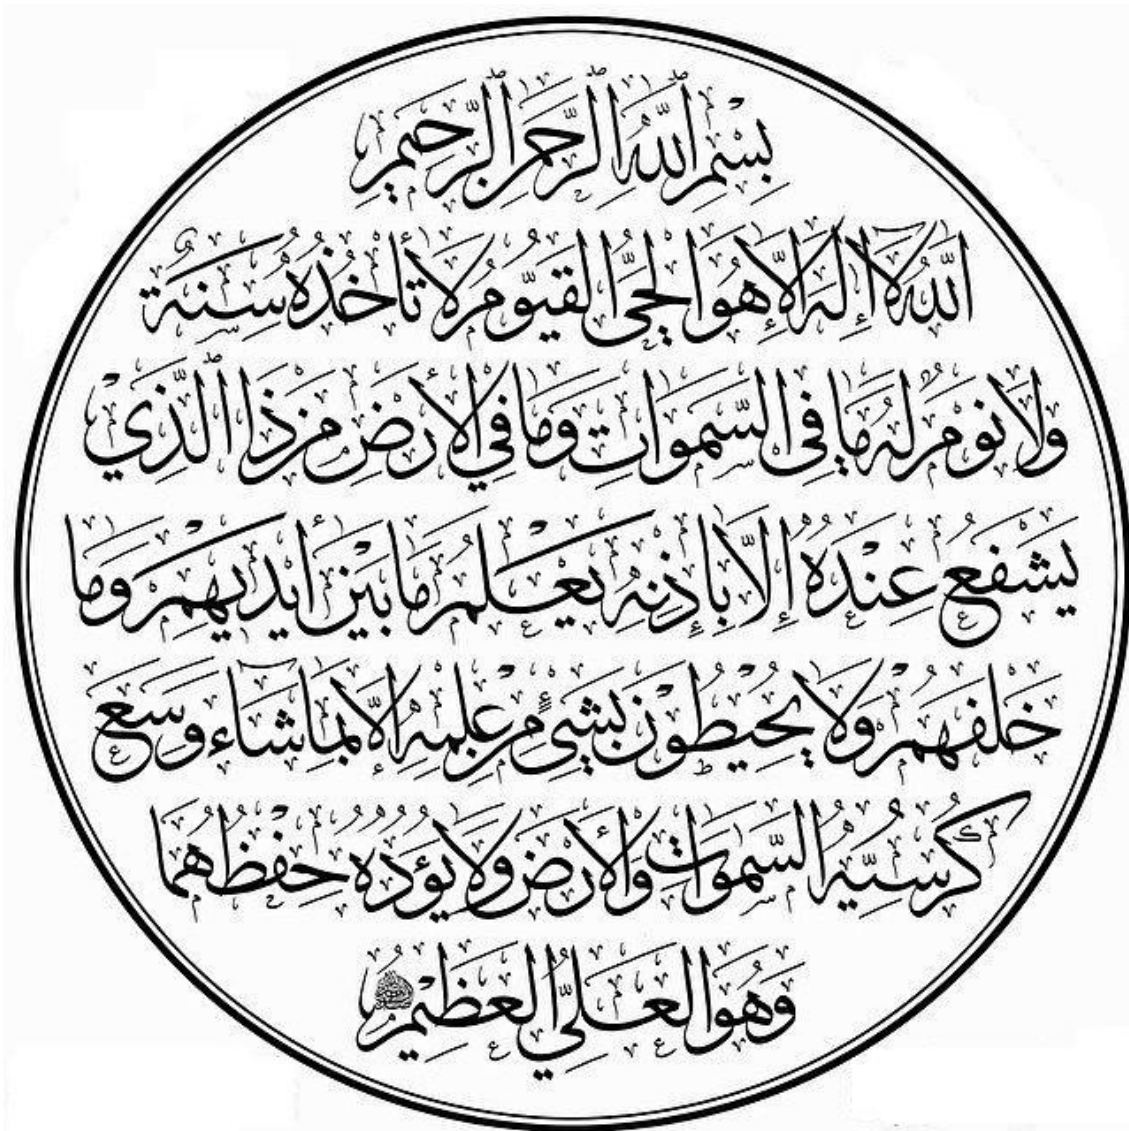 بِسْمِ ٱللَّهِ ٱلرَّحْمٰنِ ٱلرَّحِيمِ
اَللّٰهُ لَآ اِلٰهَ اِلَّا هُوَ الْحَيُّ الْقَيُّومُ لَا تَأْخُذُهُ سِنَةٌ
وَلَا نَوْمٌ لَهُ مَا فِي السَّمٰوَاتِ وَمَا فِي الْأَرْضِ مَنْ ذَا ٱلَّذِي
يَشْفَعُ عِنْدَهُ إِلَّا بِإِذْنِهِ يَعْلَمُ مَا بَيْنَ أَيْدِيهِمْ وَمَا
خَلْفَهُمْ وَلَا يُحِيطُونَ بِشَيْءٍ مِنْ عِلْمِهِ إِلَّا بِمَا شَآءَ وَسِعَ
كُرْسِيُّهُ السَّمٰوَاتِ وَالْأَرْضَ وَلَا يَؤُدُهُ حِفْظُهُمَا
وَهُوَ الْعَلِيُّ الْعَظِيمُ